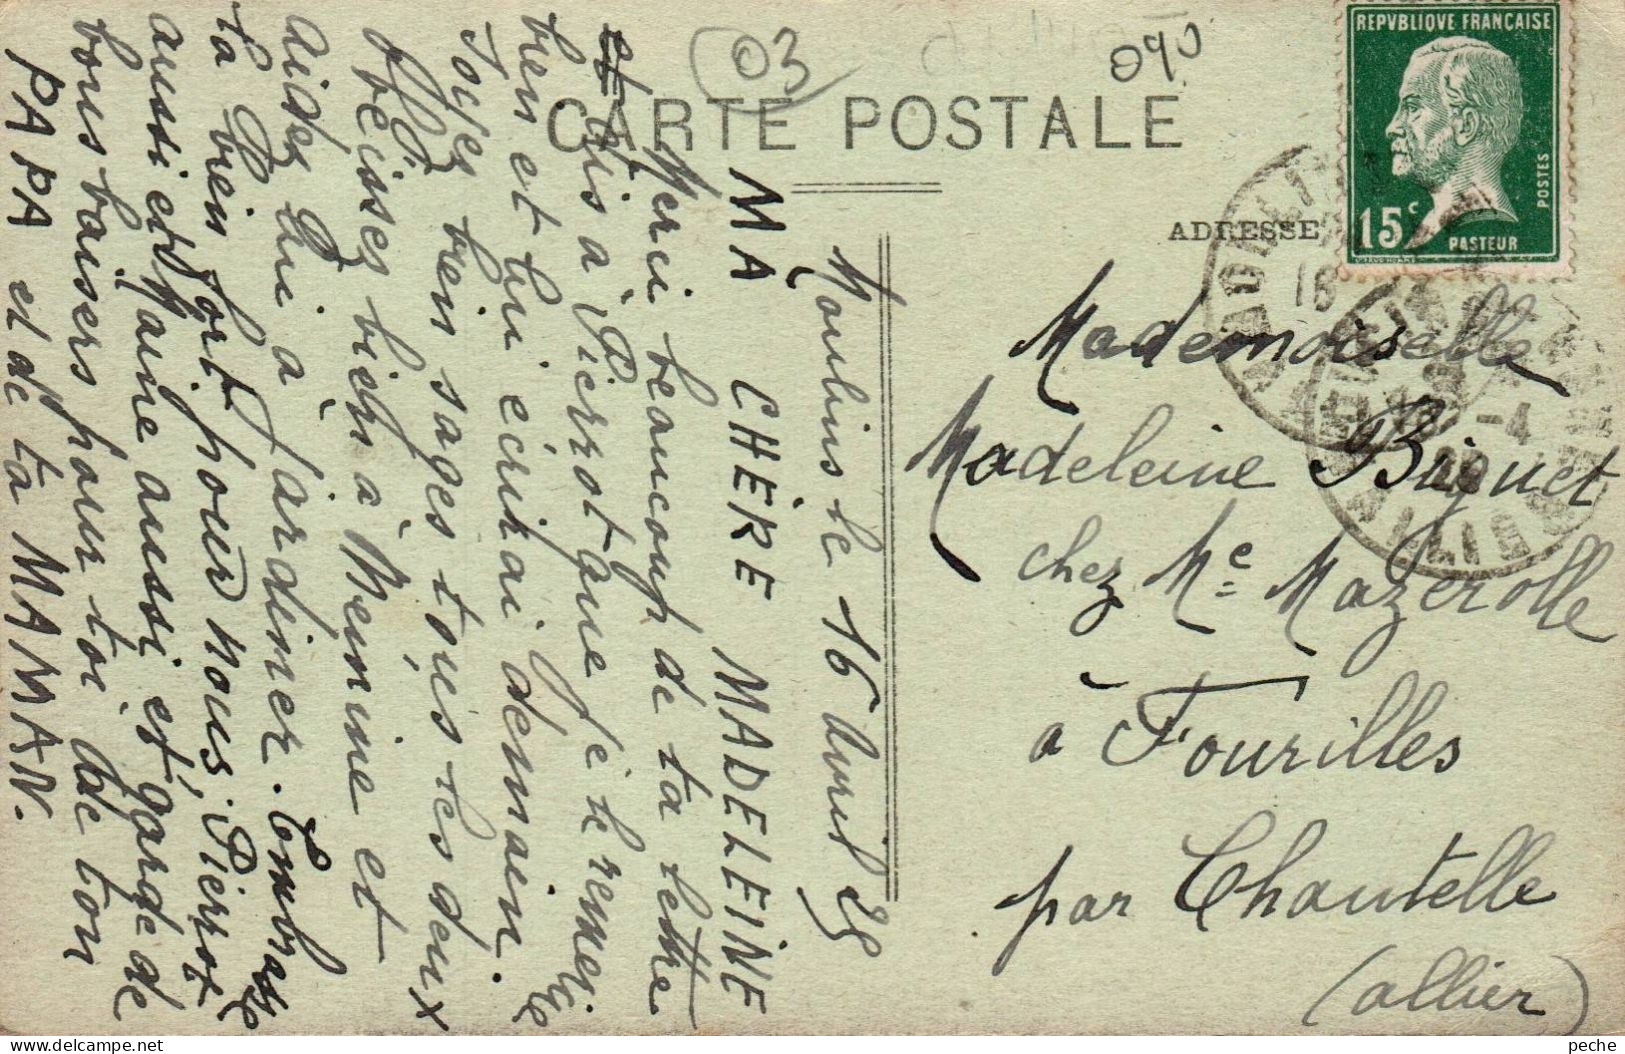 03
090
CARTE POSTALE
REPVBLIQVE FRANÇAISE
15c
PASTEUR
POSTES
ADRESSE
18
-4
Mademoiselle
Madeleine Biguet
chez Me Mazerolle
à Fourilles
par Chantelle
(Allier)
Moulins le 16 Avril 25
MA CHÈRE MADELEINE
Merci beaucoup de ta lettre
et dis à Pierrot que je le remercie
bien et lui écrirai demain.
Soyez bien sages tous les deux
obéisses bien à Mémine et
aidez lui à jardiner. Embrasse
la bien fort pour nous, Pierrot
aussi et Marie aussi et garde de
bons baisers pour toi de ton
PAPA et de ta MAMAN.
peche